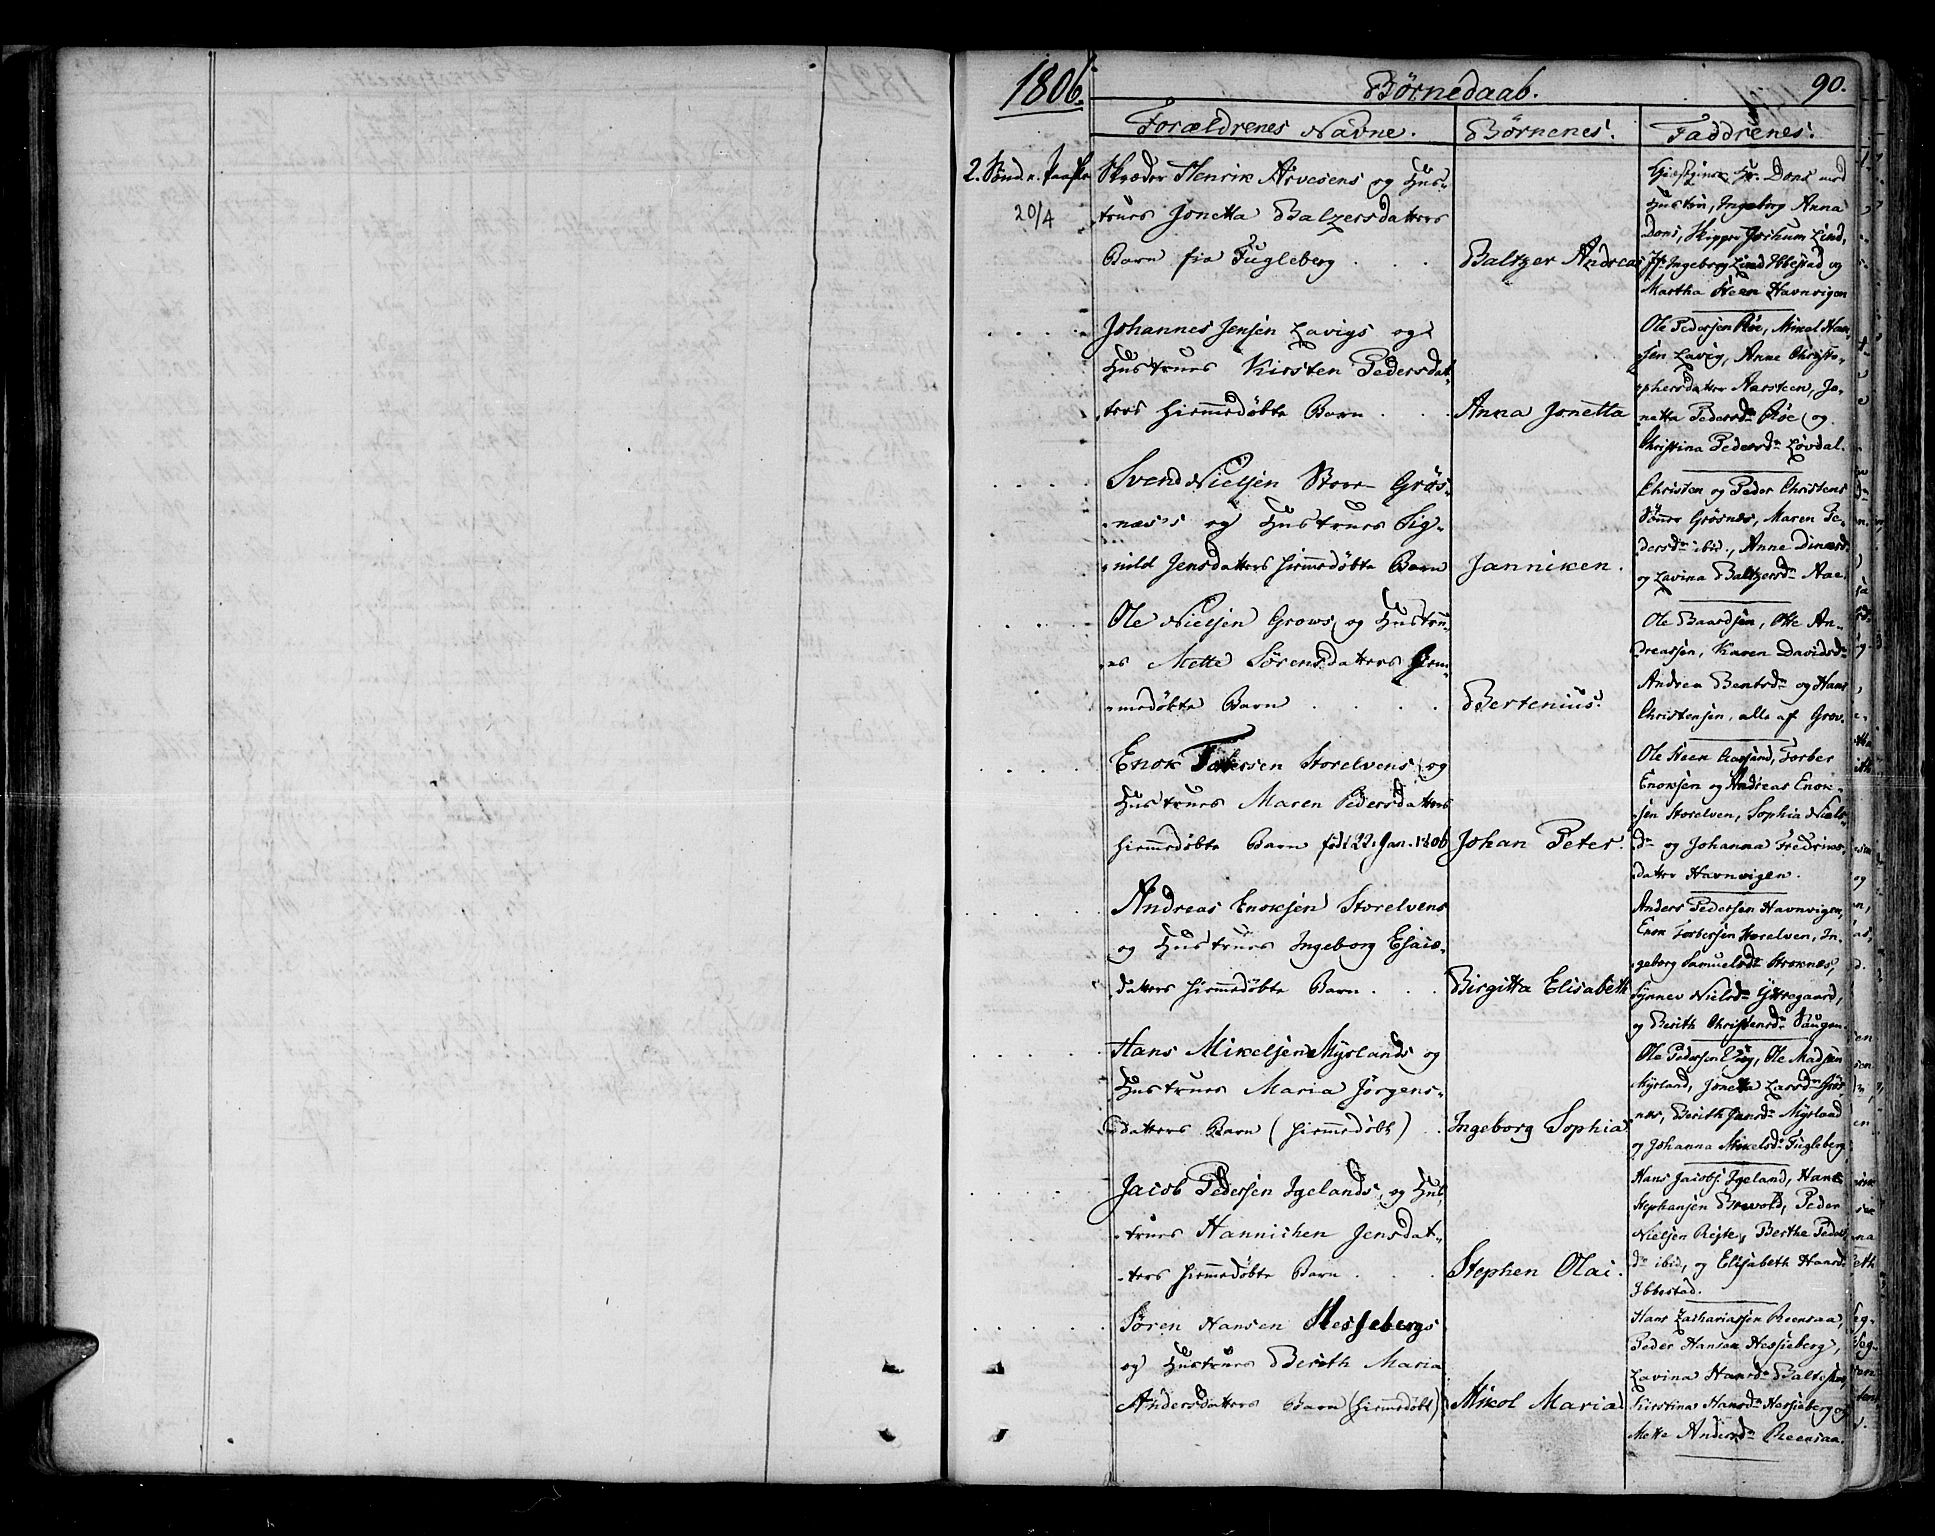 1806.
Børnedaab.
90.
Forældrenes Navne.
Børnenes.
Faddrenes.
2. Sönd. n. Paaske
20/4
Skræder Henrik Arvesens og Hus-
truens Jonetta Balzersdatters
Barn fra Fugleberg . . .
Baltzer Andreas
Hr. Dons med
Hustru, Ingeborg Anna
Dons, Skipper Jochum Lind,
Jfr. Ingeborg Lind Ibbestad og
Martha Steen Havnvigen
Johannes Jensen Lavigs og
Hustrues Kirsten Pedersdat-
ters hiemmedøbte Barn . . .
Anna Jonetta
Ole Pedersen Röe, Mikel Han-
sen Lavig, Anne Christo-
phersdatter Aarsteen, Jo-
netta Pedersdr Röe og
Christina Pedersdr Løvdal.
Svend Nielsen Store Grøs-
næs's og Hustrues Sig-
nild Jensdatters hiemmedøbte Barn
Janniken.
Christen og Peder Christens
Sönner Grøsnæs, Maren Pe-
dersdr ibid., Anne Dinesdr
og Lavina Baltzersdr Aae.
Ole Nielsen Grows og Hustru-
es Mette Sørensdatters hiem-
medøbte Barn . . . .
Bertenius.
Ole Baardsen, Otte An-
dreassen, Karen Davidsdr
Andrea Bentsdr og Hans
Christensen, alle af Grov.
Enok Torbersen Storelvens og
Hustrues Maren Pedersdatters
hiemmedøbte Barn født 22. Jan. 1806
Johan Peter.
Ole Steen Aarsand, Torber
Enoksen og Andreas Enok-
sen Storelven, Sophia Niels-
dr og Johanna Fredriks-
datter Havnvigen.
Andreas Enoksen Storelvens
og Hustrues Ingeborg Esaie-
datters hiemmedøbte Barn . . .
Birgitta Elisabeth
Anders Pedersen Havnvigen,
Enok Torbersen Storelven, In-
geborg Samuelsdr Stroknæs,
Synnev Nielsdr Yttregaard,
og Berith Christensdr Saugen.
Hans Mikelsen Myrlands og
Hustrues Maria Jörgens-
datters Barn (hiemmedøbt) .
Ingeborg Sophia
Ole Pedersen Vig, Ole Madsen
Myrland, Jonetta Larsdr Grøs-
næs, Berith Jansdr Myrland
og Johanna Mikelsdr Fugleberg
Jacob Pedersen Igelands, og Hus-
trues Hannichen Jensdat-
ters hiemmedøbte Barn . . .
Stephen Olai.
Hans Jacobs. Igeland, Hans
Stephansen Brevold, Peder
Nielsen Rejte, Berthe Peders-
dr ibid, og Elisabeth Hansdr
Ibbestad.
Søren Hansen Hessjebergs
og Hustrues Berith Maria
Andersdatters Barn (hiemmedøbt)
Nikol Maria
Hans Zachariassen Reensaa,
Peder Hansen Hessjeberg,
Lavina Hansdr
Kirstina Hansdr Hessjeberg og
Mette Andersdr Reensaa.